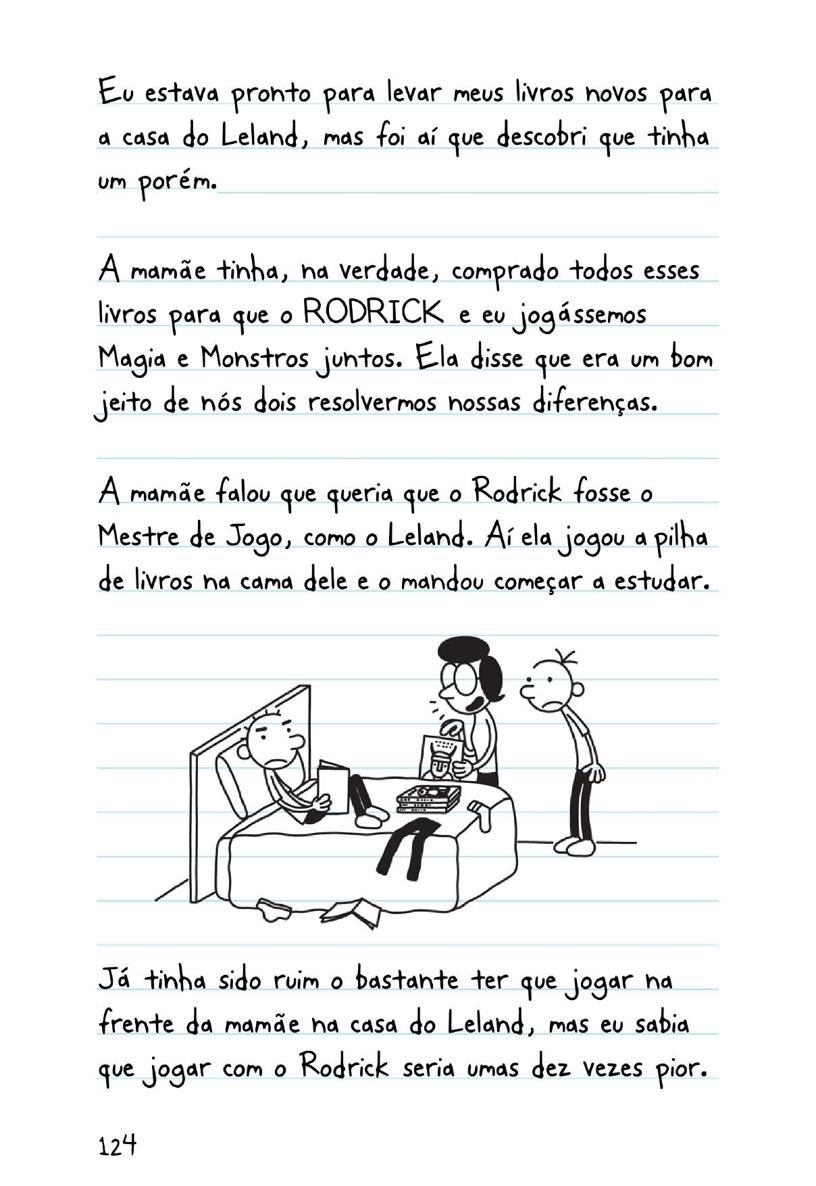 Eu estava pronto para levar meus livros novos para
a casa do Leland, mas foi aí que descobri que tinha
um porém.
A mamãe tinha, na verdade, comprado todos esses
livros para que o RODRICK e eu jogássemos
Magia e Monstros juntos. Ela disse que era um bom
jeito de nós dois resolvermos nossas diferenças.
A mamãe falou que queria que o Rodrick fosse o
Mestre de Jogo, como o Leland. Aí ela jogou a pilha
de livros na cama dele e o mandou começar a estudar.
Já tinha sido ruim o bastante ter que jogar na
frente da mamãe na casa do Leland, mas eu sabia
que jogar com o Rodrick seria umas dez vezes pior.
124